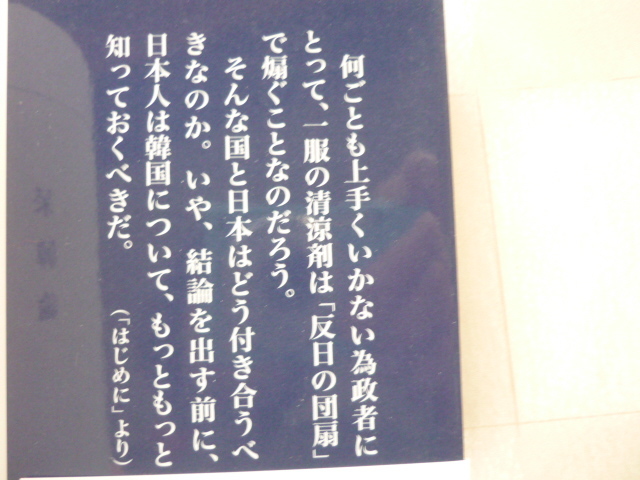 何ごとも上手くいかない為政者に
とって、一服の清涼剤は「反日の団扇」
で煽ぐことなのだろう。
そんな国と日本はどう付き合うべ
きなのか。いや、結論を出す前に、
日本人は韓国について、もっともっと
知っておくべきだ。
(「はじめに」より)